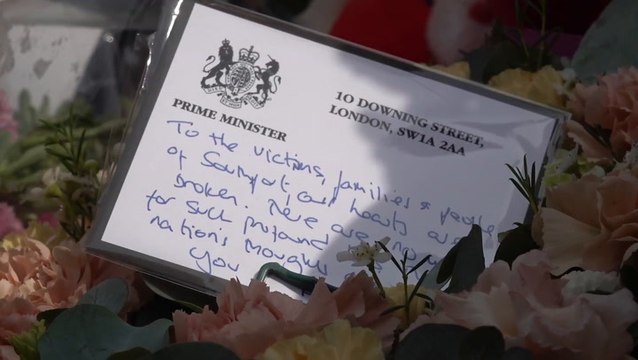 PRIME MINISTER
10 DOWNING STREET,
LONDON, SW1A 2AA
To the victims, families & people
of Southport our hearts are
broken. There are no w
for such profound
nation's thoughts
you